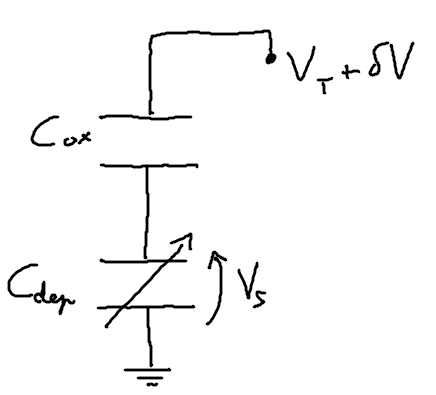 V_T + δV
C_ox
C_dep
V_s